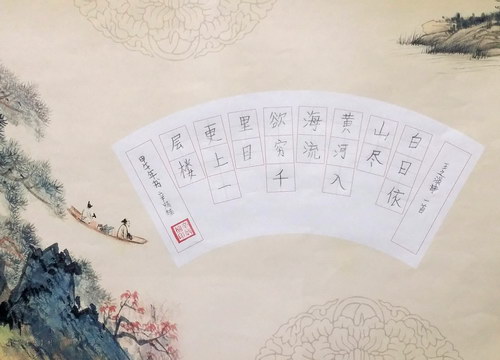 王之涣诗一首
白日依
山尽
黄河入
海流
欲穷千
里目
更上一
层楼
甲午年书